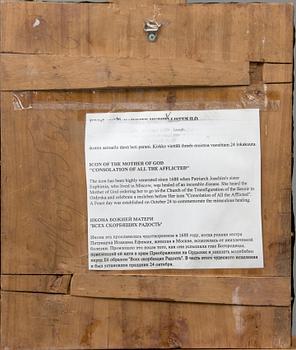 dostin samaalla tämä heti parani. Kirkko viettää tämän muistoa vuosittain 24 lokakuuta.
ICON OF THE MOTHER OF GOD
"CONSOLATION OF ALL THE AFFLICTED"
The icon has been highly venerated since 1688 when Patriarch Joachim's sister
Euphimia, who lived in Moscow, was healed of an incurable disease. She heard the
Mother of God ordering her to go to the Church of the Transfiguration of the Savior in
Ordynka and celebrate a moleben before her icon "Consolation of All the Afflicted".
A Feast day was established on October 24 to commemorate the miraculous healing.
ИКОНА БОЖИЕЙ МАТЕРИ
'ВСЕХ СКОРБЯЩИХ РАДОСТЬ'
Икона эта прославилась чудотворениями в 1688 году, когда родная сестра
Патриарха Иоакима Ефимия, жившая в Москве, исцелилась от неизлечимой
болезни. Произошло это после того, как она услышала глас Богородицы,
призвавшей её идти в храм Преображения на Ордынке и заказать молебен
перед Её образом "Всех скорбящих Радость". В честь этого чудесного исцеления
и был установлен праздник 24 октября.